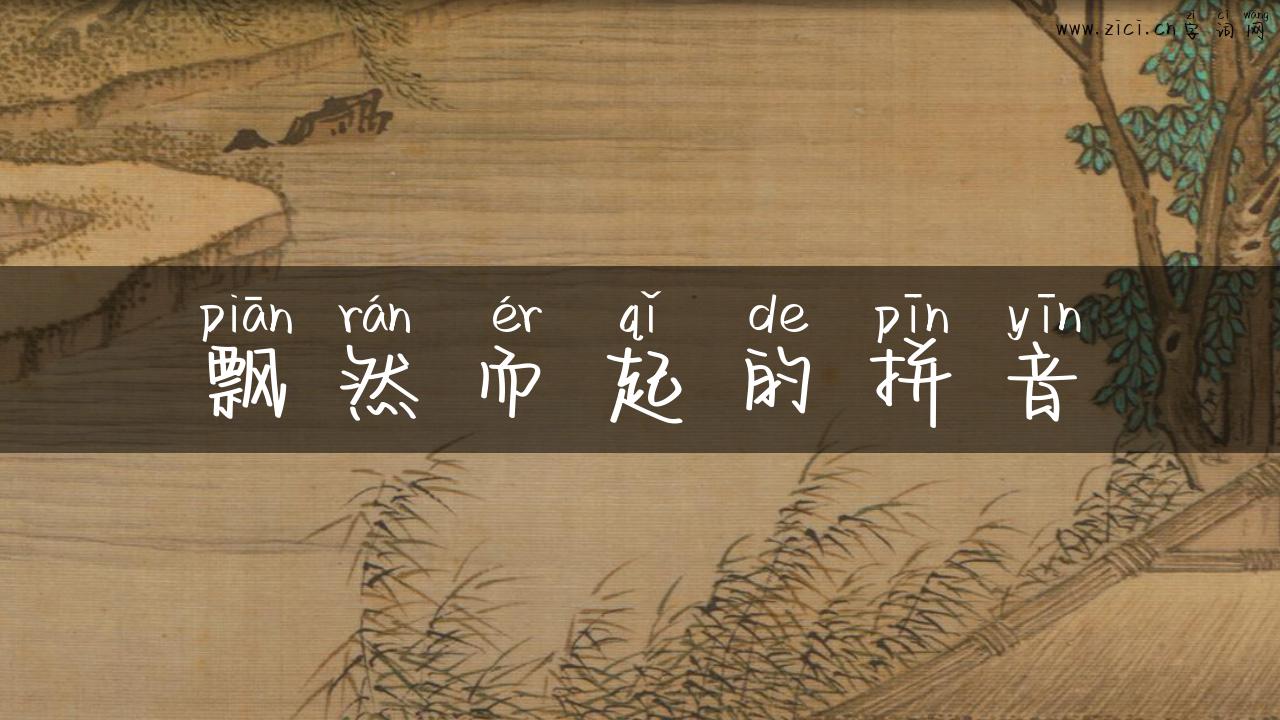 zì cí wǎng
www.zici.cn字词网
piān rán ér qǐ de pīn yīn
飘然而起的拼音